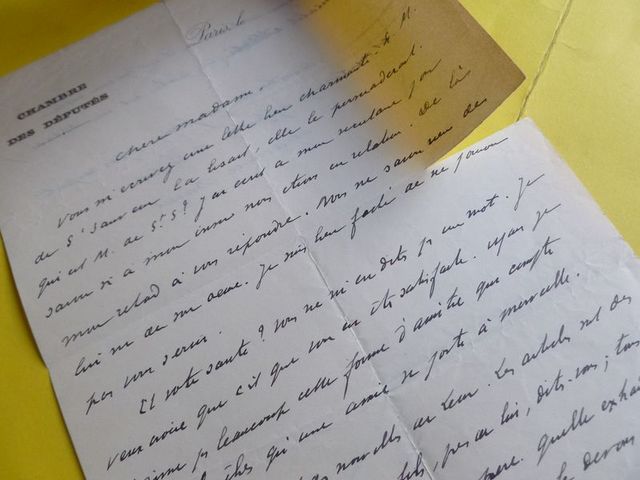 CHAMBRE
DES DÉPUTÉS
Paris, le
Chère madame,
Vous m'écrivez une lettre bien charmante. M.
de St Sauveur la lisant, elle le persuaderait.
qui est M. de St S? J'ai écrit à mon secrétaire pour
savoir si à mon insu nous étions en relation. De là
mon retard à vous répondre. Nous ne savons rien de
lui ni de son œuvre. Je suis bien fâché de ne pouvoir
pas vous servir.
Et votre santé? Vous ne m'en dites pas un mot. Je
veux croire que c'est que vous en êtes satisfaite. Mais je
n'aime pas beaucoup cette forme d'amitié qui compte
qu'une amie se porte à merveille.
nouvelles Les articles sont des
fils, dites-vous; tous
quelle
devous